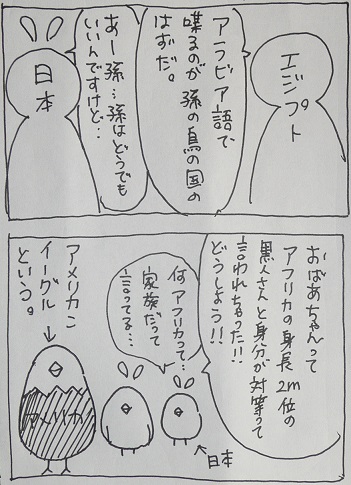 エジプト
アラビア語で
喋るのが 孫の鳥の国の
はずだ。
あー孫…孫はどうでも
いいんですけど…
日本
おばあちゃんって
アフリカの身長2m位の
黒人さんと身分が対等って
言われちゃった!!
どうしよう!!
何アフリカって…
家族だって
言ってる…
日本
アメリカン
イーグル
という。
アメリカ